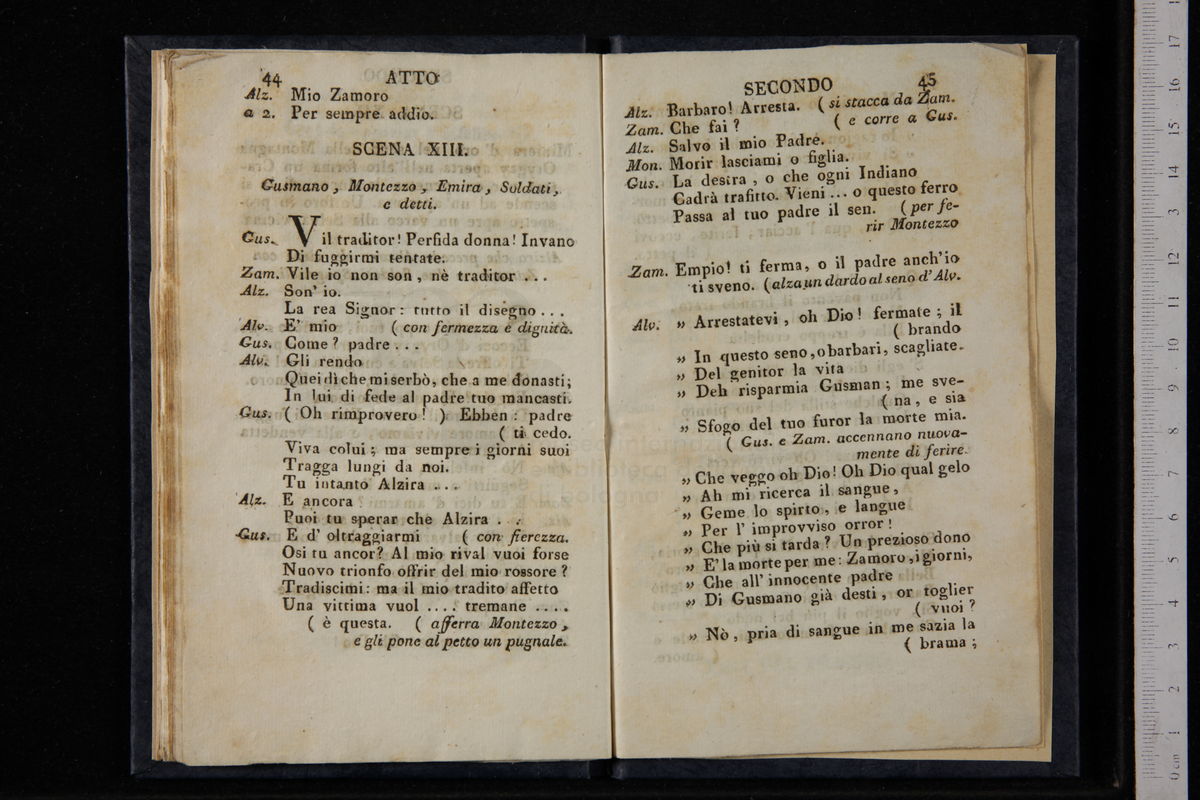 44 ATTO
Alz. Mio Zamoro
a 2. Per sempre addio.
SCENA XIII.
Gusmano, Montezzo, Emira, Soldati,
e detti.
Gus. Vil traditor! Perfida donna! Invano
Di fuggirmi tentate.
Zam. Vile io non son, nè traditor ...
Alz. Son' io.
La rea Signor: tutto il disegno ...
Alv. E' mio ( con fermezza e dignità.
Gus. Come? padre ...
Alv. Gli rendo
Quei dì che mi serbò, che a me donasti;
In lui di fede al padre tuo mancasti.
Gus. ( Oh rimprovero! ) Ebben: padre
( ti cedo.
Viva colui; ma sempre i giorni suoi
Tragga lungi da noi.
Tu intanto Alzira ...
Alz. E ancora
Puoi tu sperar che Alzira . .
Gus. E d' oltraggiarmi ( con fierezza.
Osi tu ancor? Al mio rival vuoi forse
Nuovo trionfo offrir del mio rossore?
Tradiscimi: ma il mio tradito affetto
Una vittima vuol .... tremane ....
( è questa. ( afferra Montezzo,
e gli pone al petto un pugnale.
SECONDO 45
Alz. Barbaro! Arresta. ( si stacca da Zam.
Zam. Che fai? ( e corre a Gus.
Alz. Salvo il mio Padre.
Mon. Morir lasciami o figlia.
Gus. La destra, o che ogni Indiano
Cadrà trafitto. Vieni ... o questo ferro
Passa al tuo padre il sen. ( per fe-
rir Montezzo
Zam. Empio! ti ferma, o il padre anch'io
ti sveno. (alza un dardo al seno d'Alv.
Alv. „ Arrestatevi, oh Dio! fermate; il
( brando
„ In questo seno, o barbari, scagliate.
„ Del genitor la vita
„ Deh risparmia Gusman; me sve-
( na, e sia
„ Sfogo del tuo furor la morte mia.
( Gus. e Zam. accennano nuova-
mente di ferire.
„ Che veggo oh Dio! Oh Dio qual gelo
„ Ah mi ricerca il sangue,
„ Geme lo spirto, e langue
„ Per l' improvviso orror!
„ Che più si tarda? Un prezioso dono
„ E' la morte per me: Zamoro, i giorni,
„ Che all' innocente padre
„ Di Gusmano già desti, or toglier
( vuoi?
„ Nò, pria di sangue in me sazia la
( brama;